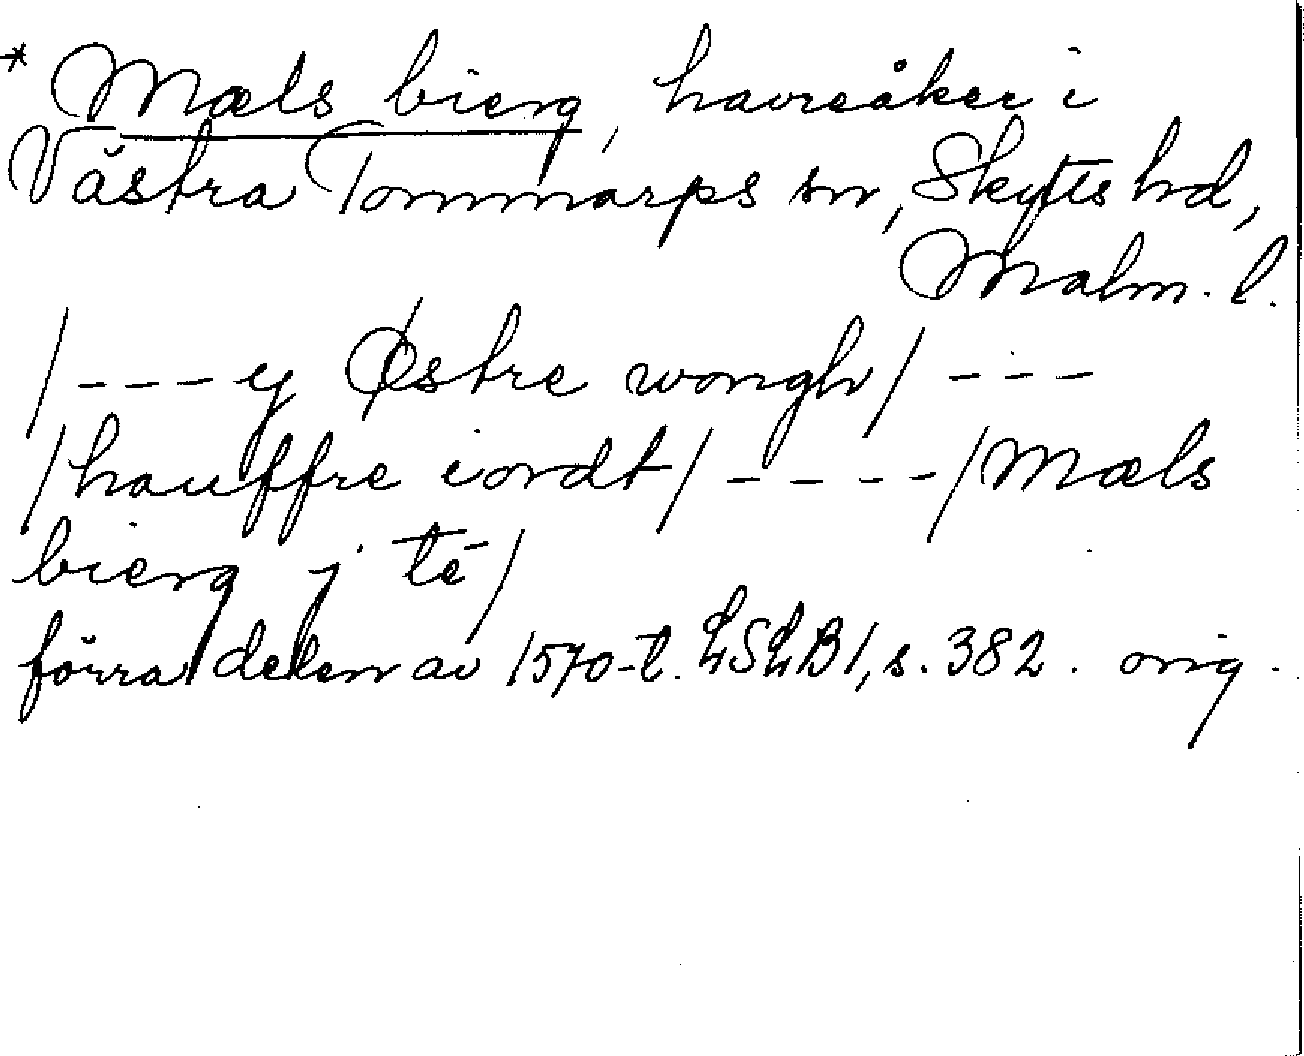 * Mæls bierg, havreåker i
Västra Tommarps sn, Skytts hd,
Malm. l.
/---y Østre wongh/ ---
/hauffre iordt/ ----/Mæls
bierg j té/
förra delen av 1570-t. LSLB1, s. 382. orig.